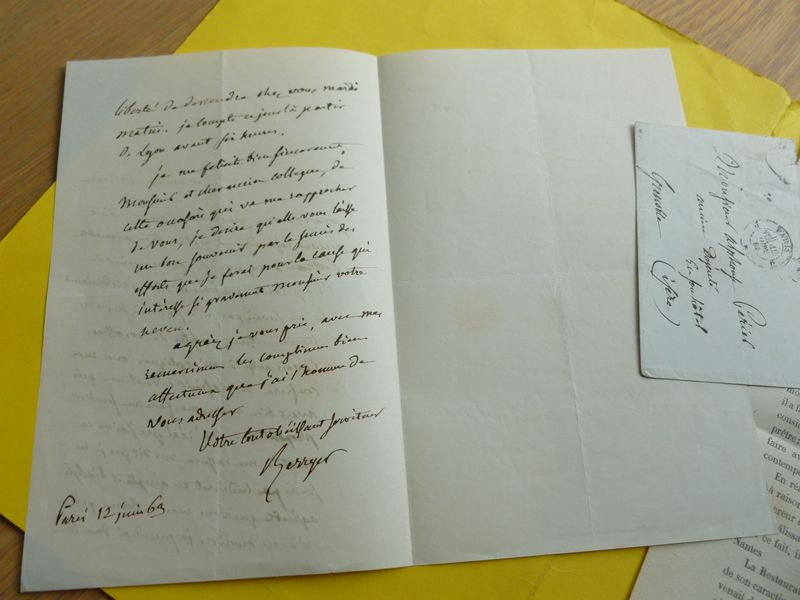 liberté de descendre chez vous mardi
matin. je compte ce jour là partir
de Lyon avant six heures.
je me felicite bien sincerement
Monsieur et cher ancien collegue, de
cette occasion qui va me rapprocher
de vous, je desire qu'elle vous laisse
un bon souvenir par le succès des
efforts que je ferai pour la cause qui
intéresse si gravement Monsieur votre
neveu.
agréez je vous prie, avec mes
remerciemens les complimens bien
affectueux que j'ai l'honneur de
vous adresser
Votre tout obéissant serviteur
Berryer
Paris 12 juin 63
Monsieur Alphonse Périer
ancien Député
en son hôtel
Grenoble (Isère)
mo
il a l
consid
prêtre
faire av
contemp
En ré
à raison
ereur
alissa
ce fait, i
Nantes
La Restaura
de son caractè
venait d